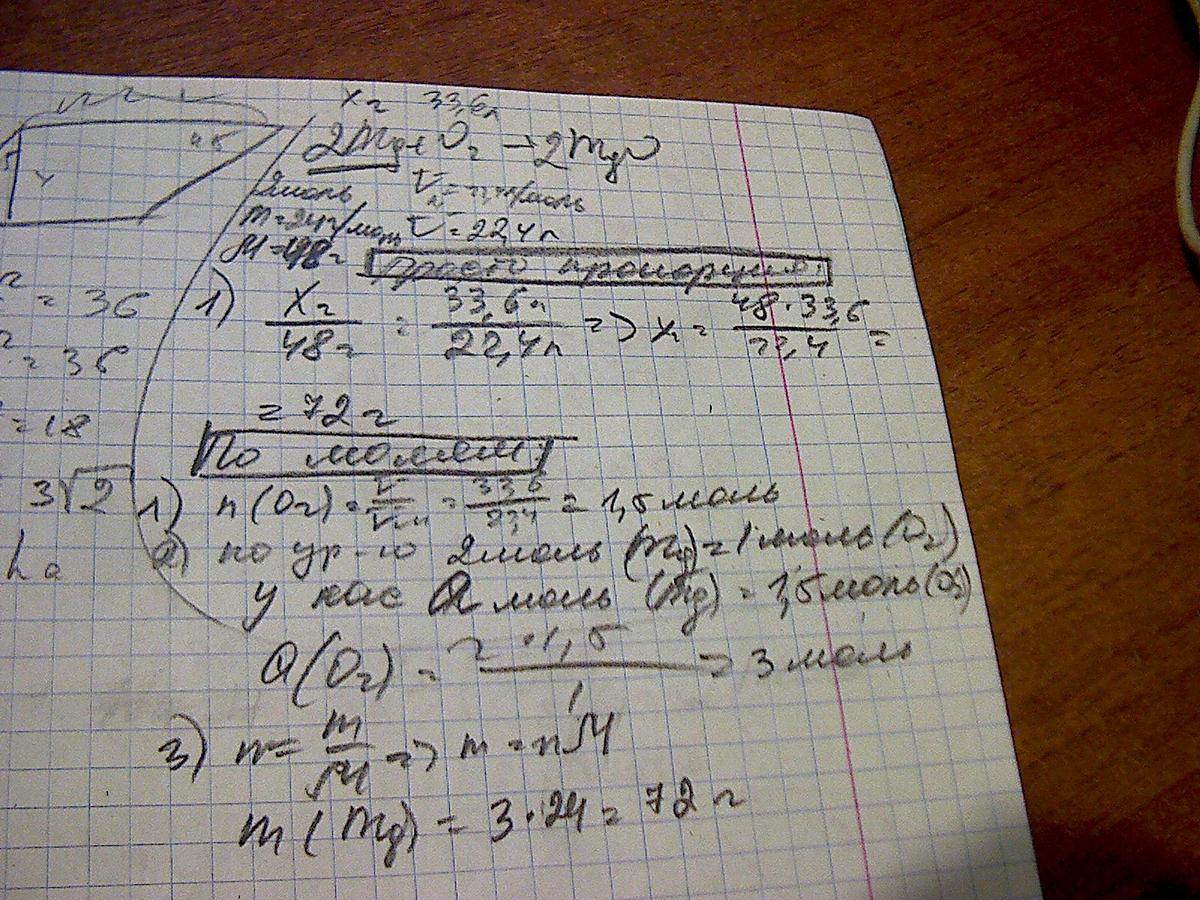 xг 33,6л
2Mg + O₂ → 2MgO
2моль Vₙ = 22,4л/моль
m=24г/моль V=22,4л
M=48г просто пропорция:
1) xг/48г = 33,6л/22,4л => xг = 48·33,6/22,4 =
= 72г
По молям
1) n(O₂) = V/Vₙ = 33,6/22,4 = 1,5 моль
2) по ур-ю 2моль (Mg) = 1 моль (O₂)
у нас a моль (Mg) = 1,5 моль (O₂)
a(O₂) = 2·1,5/1 = 3 моль
3) n = m/M => m = nM
m(Mg) = 3·24 = 72г
4
45
= 36
= 36
= 18
3√2